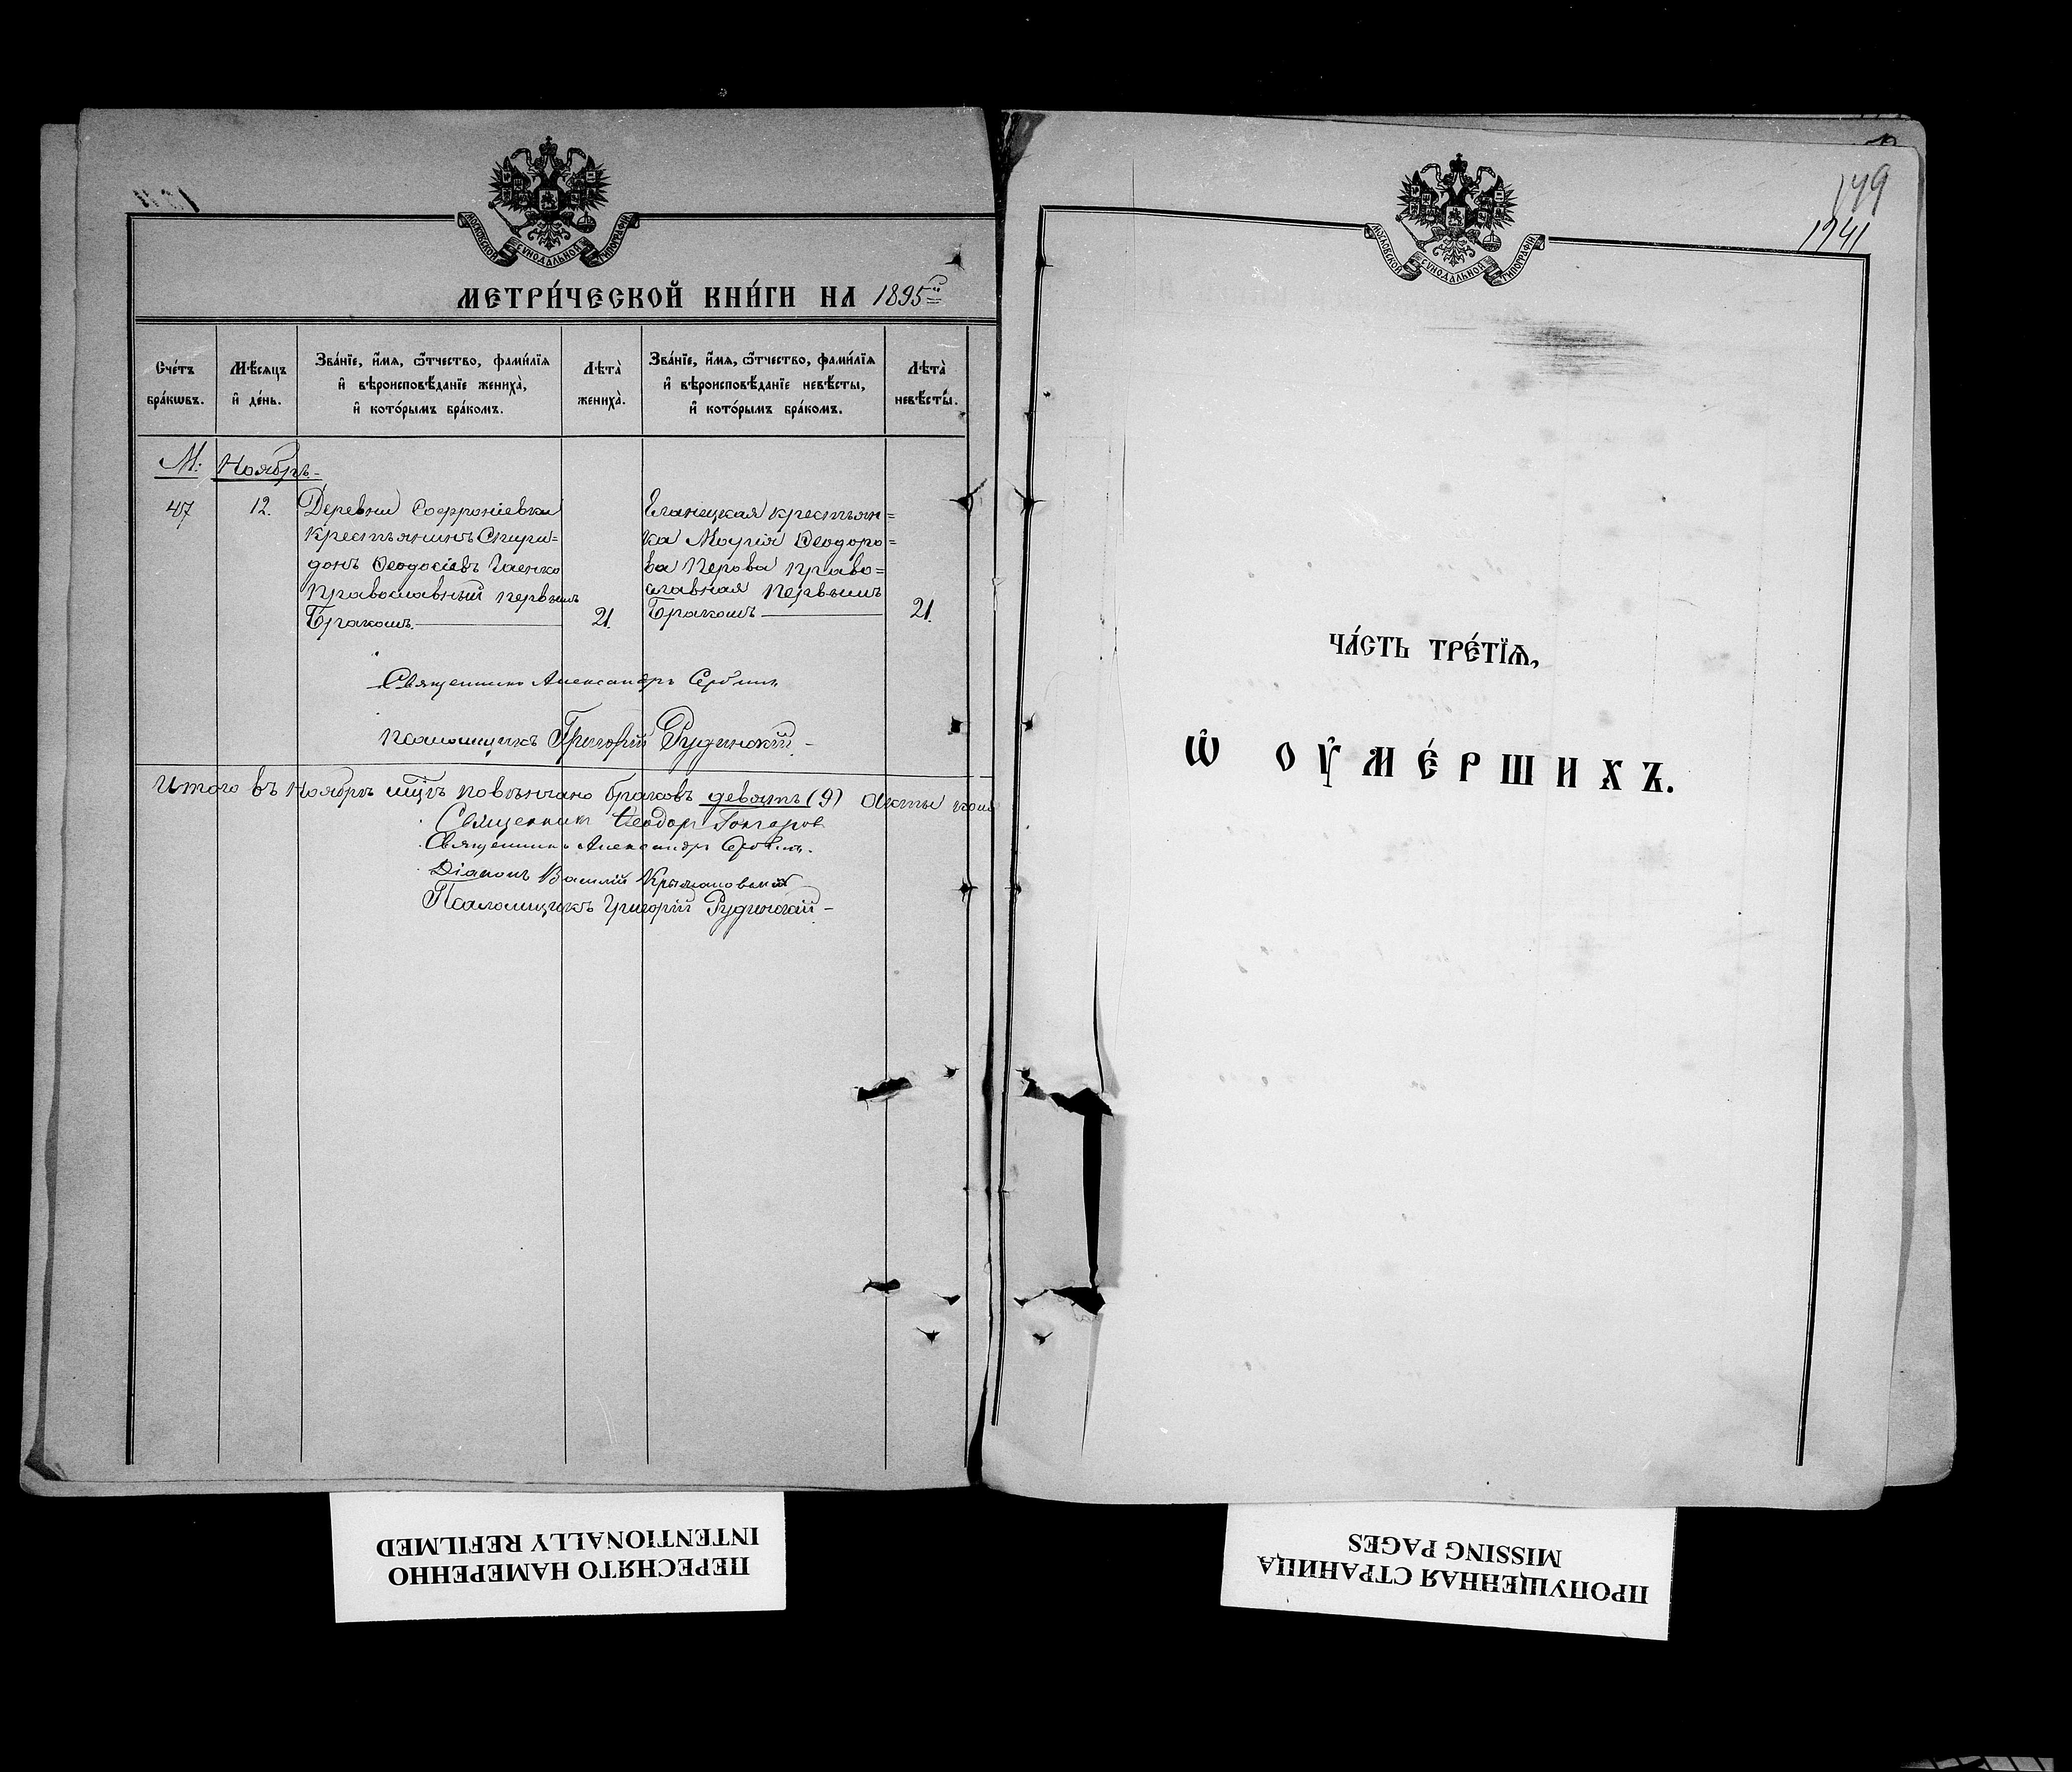 МОСКОВСКОЙ СѴНОДАЛЬНОЙ ТИПОГРАФІИ
МЕТРИ́ЧЕСКОЙ КНИ́ГИ НА 1895й
Сче́тъ бра́кѡвъ.
Мѣ́сяцъ и҆ де́нь.
Зва́нїе, и҆́мя, ѻ҆́тчество, фами́лїя
и҆ вѣроисповѣ́данїе женихà,
и҆ кото́рымъ бра́комъ.
Лѣта̀ женихà.
Зва́нїе, и҆́мя, ѻ҆́тчество, фами́лїя
и҆ вѣроисповѣ́данїе невѣ́сты,
и҆ кото́рымъ бра́комъ.
Лѣта̀ невѣ́сты.
М. Ноябрь.
47 12.
Деревни Софроніевки
крестьянинъ Спири=
донъ Ѳеодосіевъ Гаенко
православный первымъ
бракомъ. 21.
Еланецкая крестьян=
ка Марія Ѳеодоро=
ва Перова право=
славная первымъ
бракомъ 21.
Священникъ Александръ Сербинъ
Псаломщикъ Григорій Рудинскій.
Итого въ Ноябрѣ мцѣ повѣнчано браковъ девять (9) Акты
Священникъ Ѳеодоръ Гончаров
Священникъ Александръ Сербинъ.
Діаконъ Василій Крыжановскій
Псаломщикъ Григорій Рудинскій
149
1741
МОСКОВСКОЙ СѴНОДАЛЬНОЙ ТИПОГРАФІИ
ЧА́СТЬ ТРЕ́ТЇѦ,
Ѡ҆ ОУ҆МЕ́РШИХЪ.
ПЕРЕСНЯТО НАМЕРЕННО
INTENTIONALLY REFILMED
ПРОПУЩЕННАЯ СТРАНИЦА
MISSING PAGES